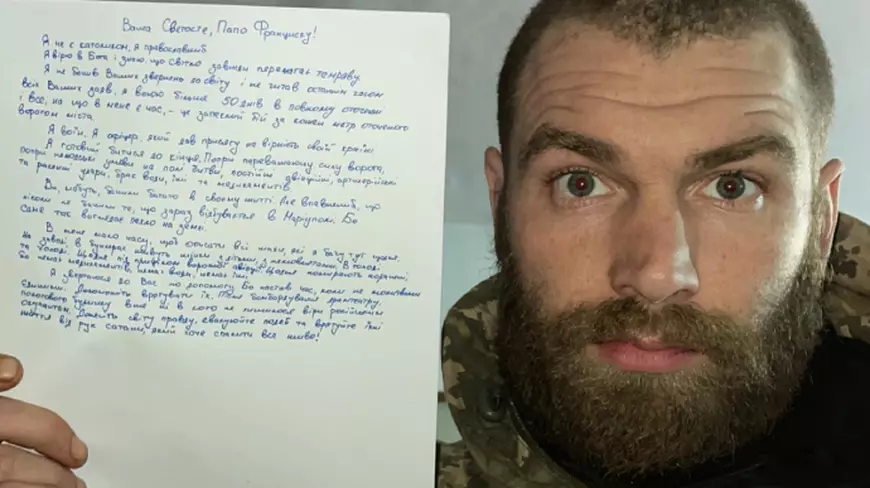 Ваша Святосте, Папо Франциску!
Я не є католиком, я православний.
Я вірю в Бога і знаю, що світло завжди перемагає темряву.
Я не бачив Ваших звернень до світу і не читав останнім часом
всіх Ваших заяв, я воюю більше 50 днів в повному оточенні
і все, на що в мене є час, - це запеклий бій за кожен метр оточеного
ворогом міста.
Я воїн. Я офіцер, який дав присягу на вірність своїй країні.
Я готовий битися до кінця. Попри переважаючу силу ворога,
попри нелюдські умови на полі битви, постійні авіаційні, артилерійські
та ракетні удари, брак води, їжі та медикаментів.
Ви, мабуть, бачили багато в своєму житті. Але впевнений, що
ніколи не бачили те, що зараз відбувається в Маріуполі. Бо
саме так виглядає пекло на землі.
В мене мало часу, щоб описати всі жахи, які я бачу тут щодня.
На заводі в бункерах живуть жінки з дітьми, з немовлятами. В голоді
та холоді. Щодня під прицілом ворожої авіації. Щодня помирають поранені,
бо нема медикаментів, нема води, нема їжі.
Я звертаюся до Вас по допомогу. Бо настав час, коли не молитвами
єдиними. Допоможіть врятувати їх. Після бомбардування драмтеатру,
пологового будинку вже ні в кого не лишилося віри російським
окупантам. Донесіть світу правду, евакуюйте людей та врятуйте їхні
життя від рук сатани, який хоче спалити все живе!